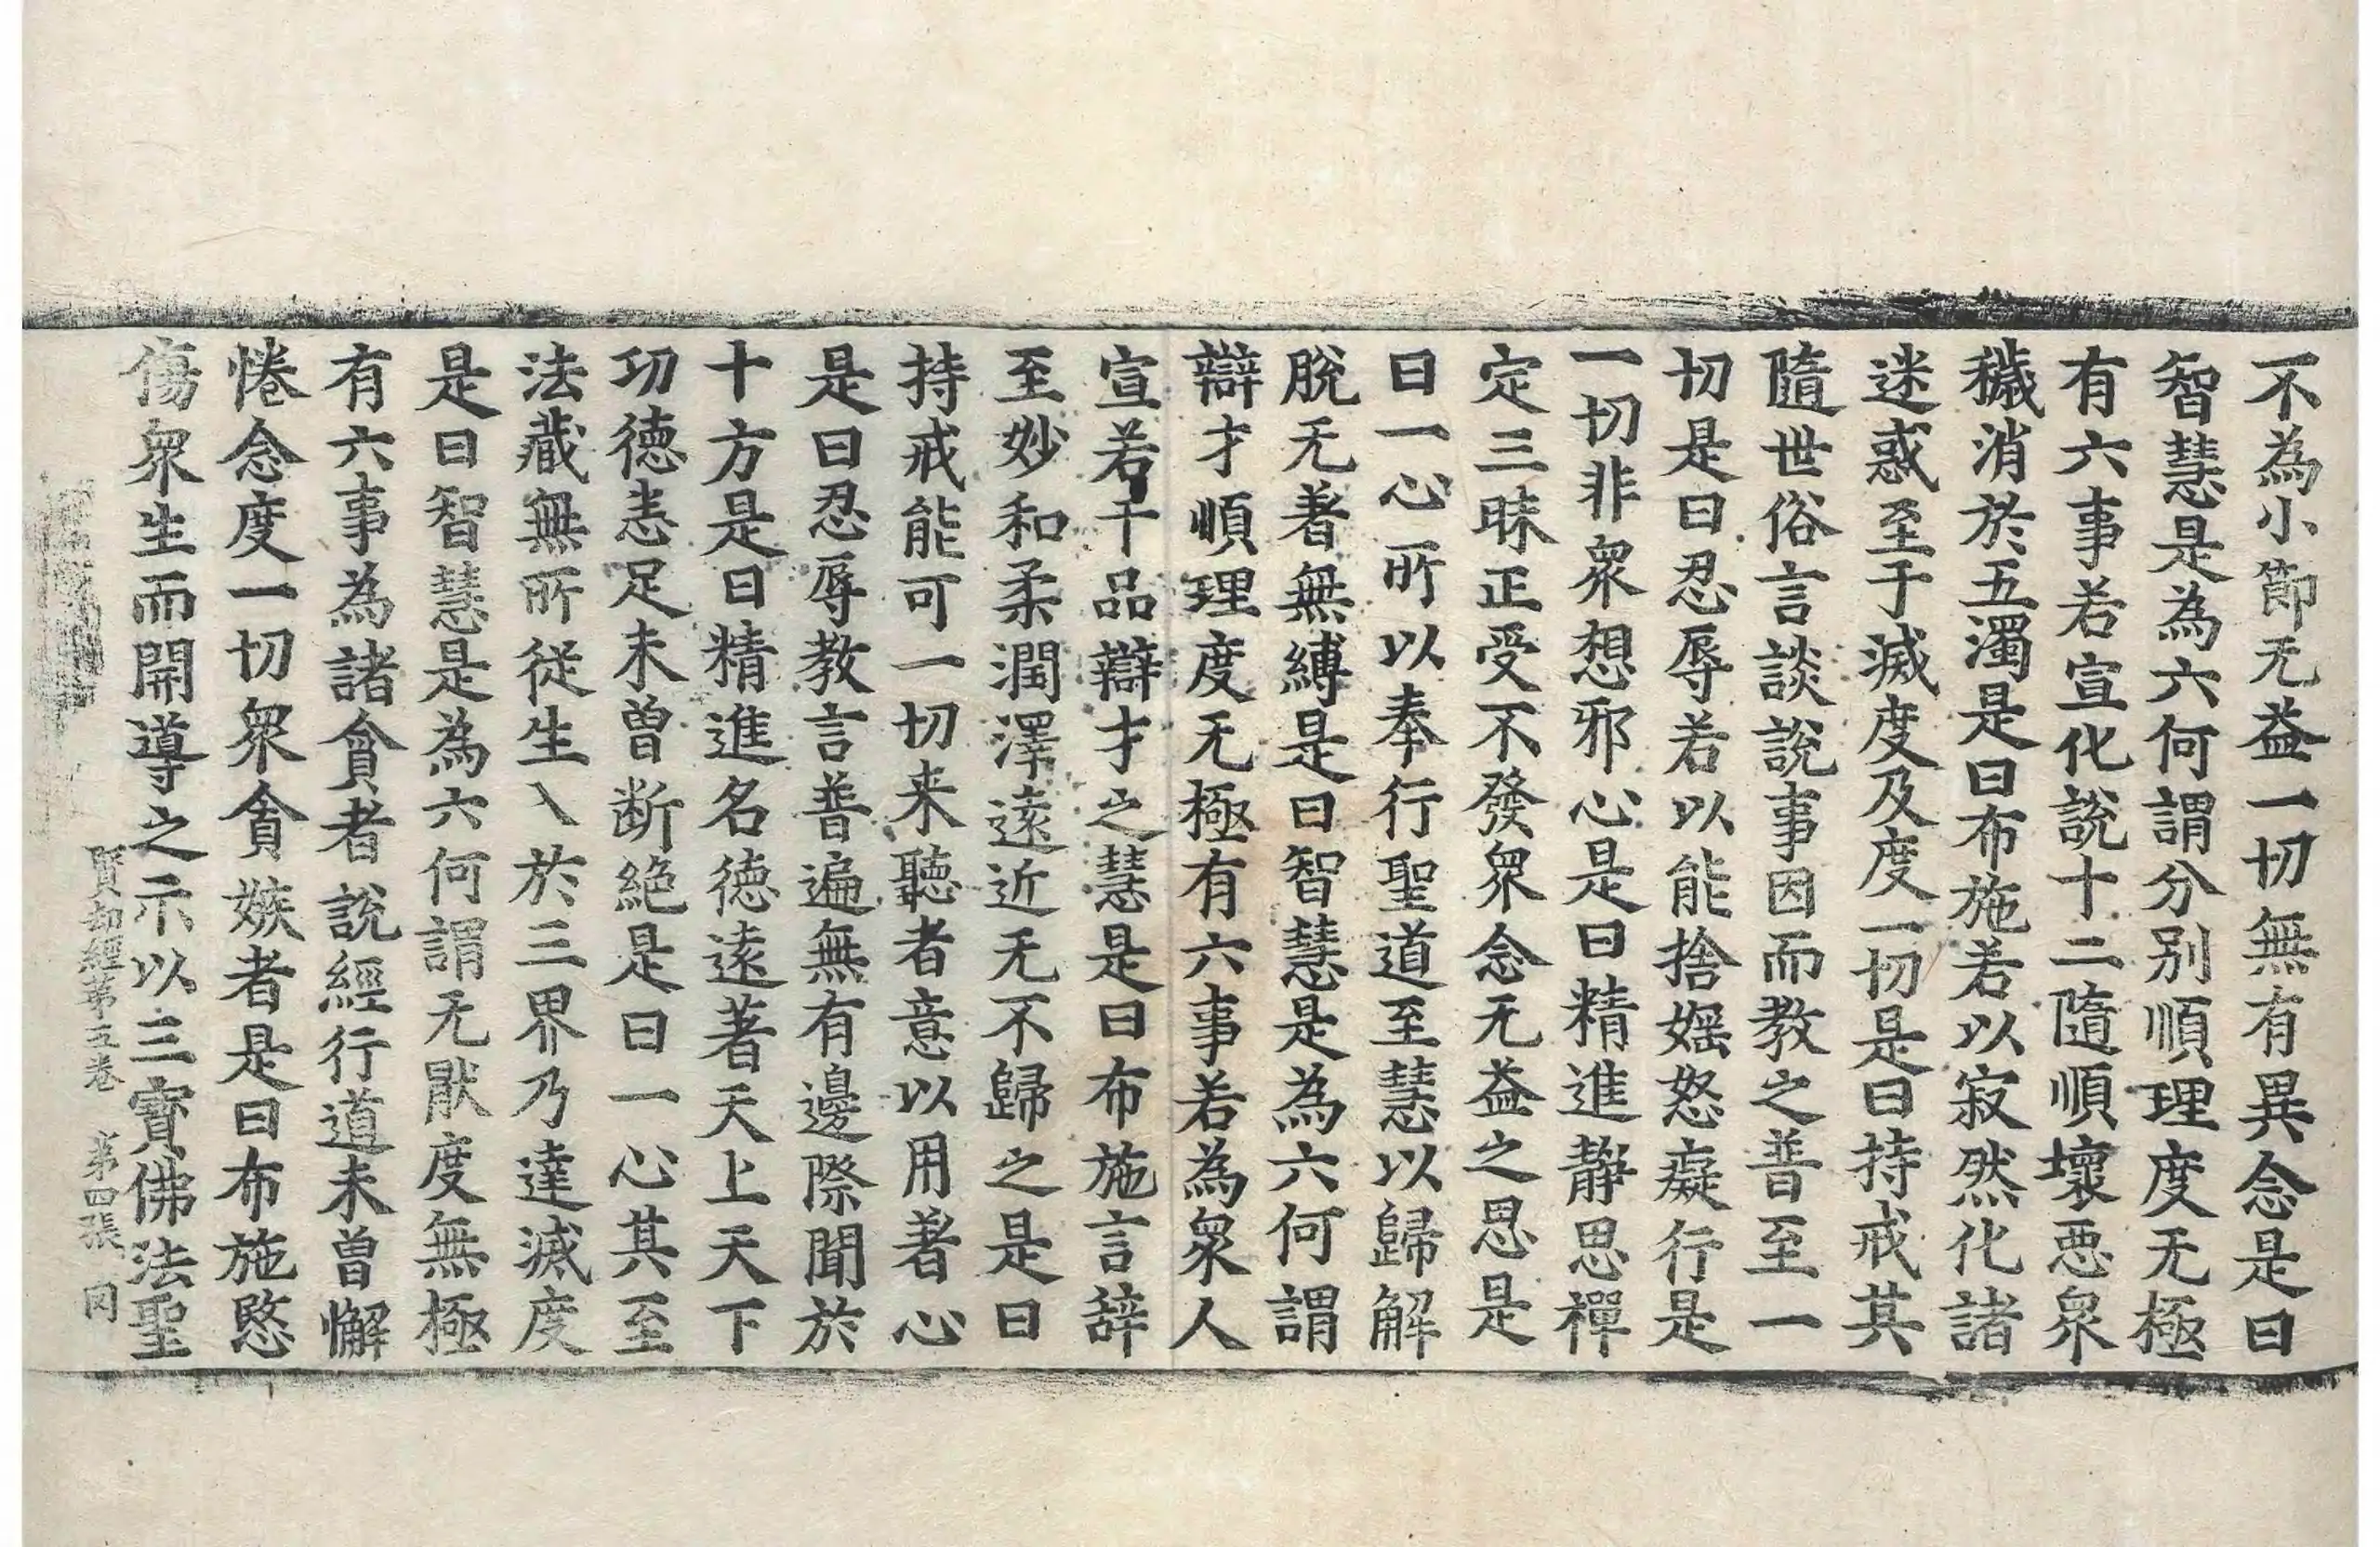 不為小節无益一切無有異念是曰
智慧是為六何謂分別順理度无極
有六事若宣化說十二隨順壞惡衆
穢消於五濁是曰布施若以寂然化諸
迷惑至于滅度及度一切是曰持戒其
隨世俗言談說事因而教之普至一
切是曰忍辱若以能捨婬怒癡行是
一切非衆想邪心是曰精進靜思禪
定三昧正受不發衆念无益之思是
曰一心所以奉行聖道至慧以歸解
脫无著無縛是曰智慧是為六何謂
辯才順理度无極有六事若為衆人
宣若干品辯才之慧是曰布施言辞
至妙和柔潤澤遠近无不歸之是曰
持戒能可一切来聽者意以用著心
是曰忍辱教言普遍無有邊際聞於
十方是曰精進名德遠著天上天下
功德悉足未曾断絕是曰一心其至
法藏無所從生入於三界乃達滅度
是曰智慧是為六何謂无猒度無極
有六事為諸貧者說經行道未曾懈
惓念度一切衆貪嫉者是曰布施愍
傷衆生而開導之示以三寶佛法聖
賢劫經第五卷 第四張 罔